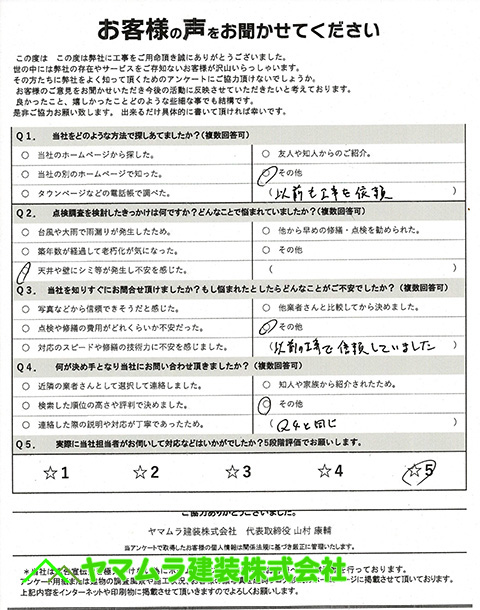 お客様の声をお聞かせてください
この度は　この度は弊社に工事をご用命頂き誠にありがとうございました。
世の中には弊社の存在やサービスをご存知ないお客様が沢山いらっしゃいます。
その方たちに弊社をよく知って頂くためのアンケートにご協力頂けないでしょうか。
お客様のご意見をお聞かせいただき今後の活動に反映させていただきたいと考えております。
良かったこと、嬉しかったことどのような些細な事でも結構です。
是非ご協力お願い致します。出来るだけ具体的に書いて頂ければ幸いです。
Q1．　当社をどのような方法で探しあてましたか？(複数回答可)
○　当社のホームページから探した。　○　友人や知人からのご紹介。
○　当社の別のホームページで知った。　○　その他
○　タウンページなどの電話帳で調べた。　(以前も工事を依頼)
Q2．　点検調査を検討したきっかけは何ですか？どんなことで悩まれていましたか？(複数回答可)
○　台風や大雨で雨漏りが発生したため。　○　他から早めの修繕・点検を勧められた。
○　築年数が経過して老朽化が気になった。　○　その他
○　天井や壁にシミ等が発生し不安を感じた。　(　)
Q3．　当社を知りすぐにお問合せ頂けましたか？もし悩まれたとしたらどんなことがご不安でしたか？（複数回答可）
○　写真などから信頼できそうだと感じた。　○　他業者さんと比較してから決めました。
○　点検や修繕の費用がどれくらいか不安だった。　○　その他
○　対応のスピードや修繕の技術力に不安を感じました。　(以前の工事で信頼していました)
Q4．　何が決め手となり当社にお問い合わせ頂きましたか？（複数回答可）
○　近隣の業者さんとして選択して連絡しました。　○　知人や家族から紹介されたため。
○　検索した順位の高さや評判で決めました。　○　その他
○　連絡した際の説明や対応が丁寧であったため。　(Q4と同じ)
Q5．　実際に当社担当者がお伺いして対応などはいかがでしたか？5段階評価でお願いします。
☆1　☆2　☆3　☆4　☆5
ご協力ありがとうございました。
ヤマムラ建装株式会社　代表取締役 山村 康輔
当アンケートで取得したお客様の個人情報は関係法規に基づき厳正に管理いたします。
ヤマムラ建装株式会社
上記内容をインターネットや印刷物に掲載させて頂いきますのでよろしくお願いします。